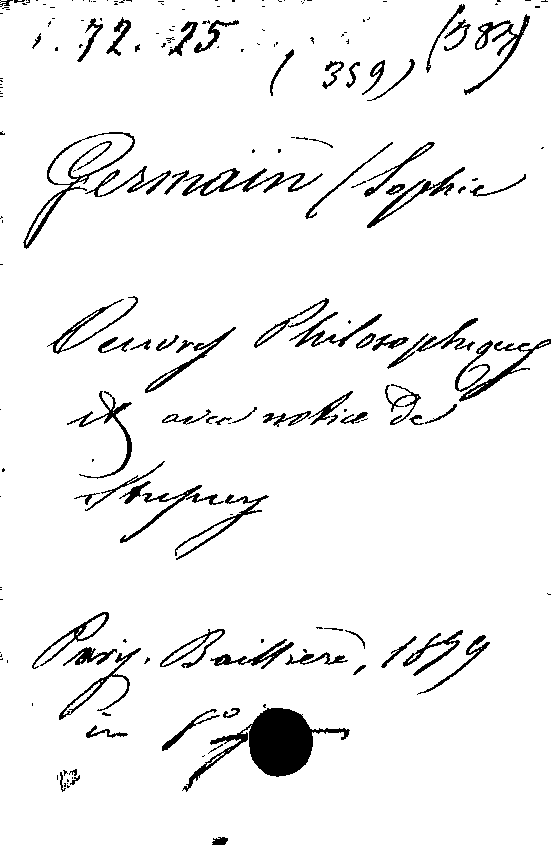 72. 25
(383)
(359)
Germain / Sophie
Oeuvres Philosophiques
avec notice de
Stupuy
Paris. Baillière, 1879
in 8°